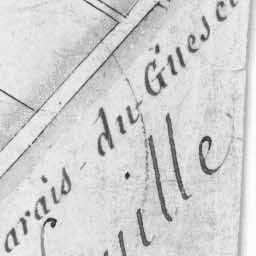 arais du Guesc
uille